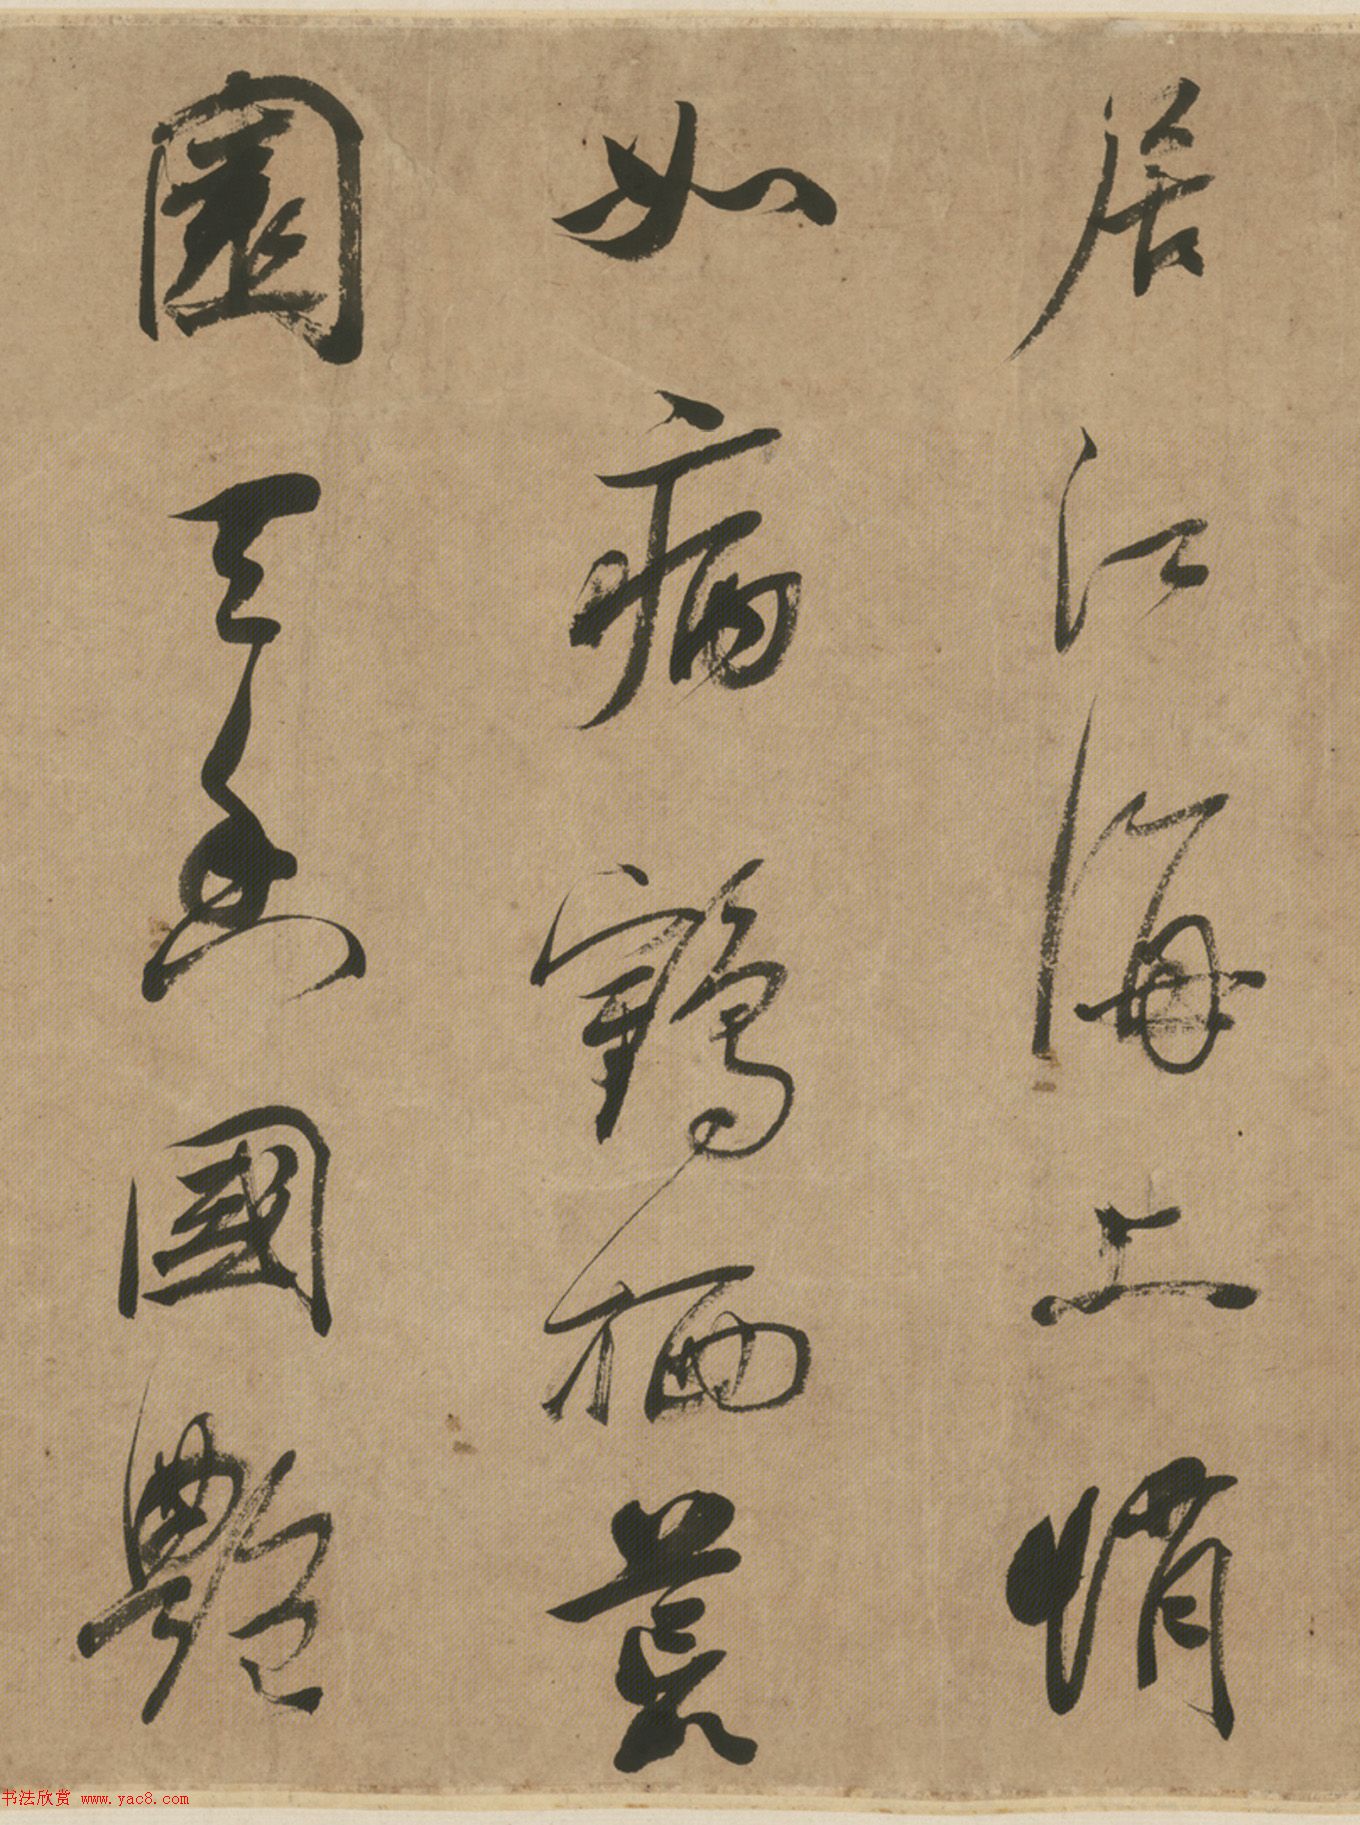 居江海上悄
如病鶴栖荒
園天香國艷
书法欣赏 www.yac8.com